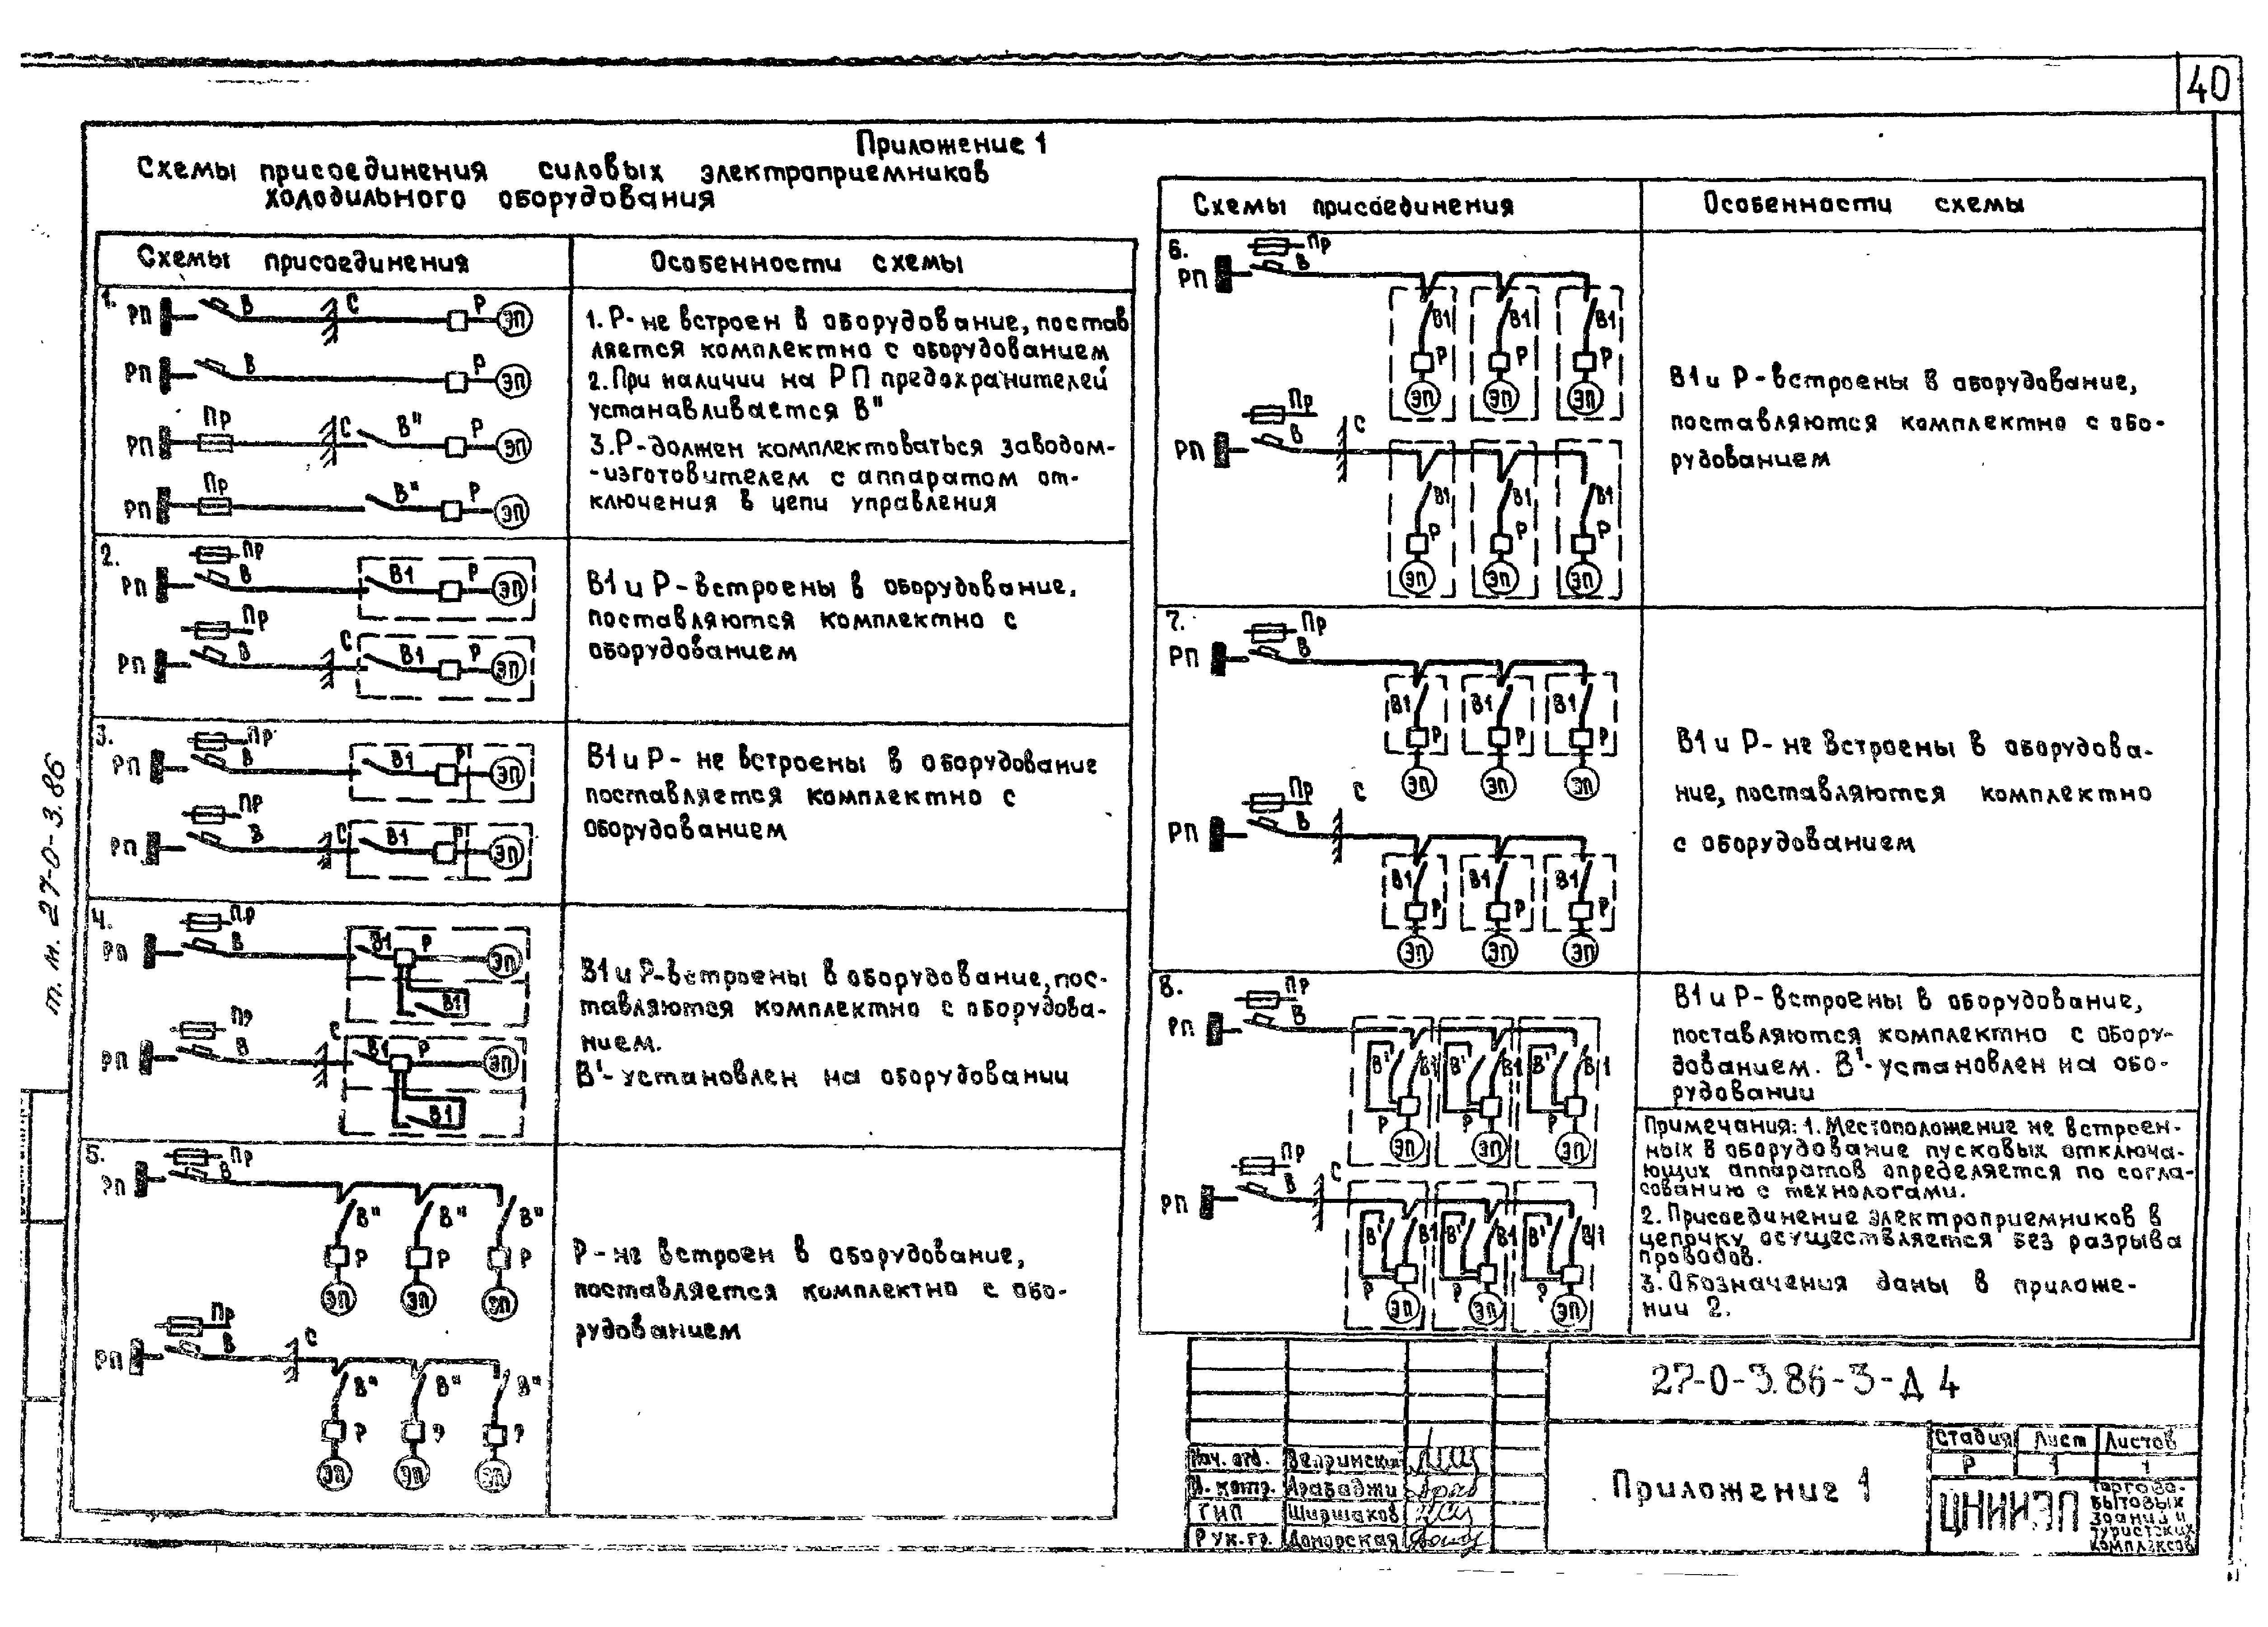 40
Приложение 1
Схемы присоединения силовых электроприемников
холодильного оборудования
Схемы присоединения
Особенности схемы
1.
РП В С Р ЭП
РП В Р ЭП
РП Пр С В" Р ЭП
РП Пр В" Р ЭП
1. Р- не встроен в оборудование, постав
ляется комплектно с оборудованием
2. При наличии на РП предохранителей
устанавливается В"
3. Р-должен комплектоваться заводом-
-изготовителем с аппаратом от-
ключения в цепи управления
2.
РП Пр В В1 Р ЭП
РП Пр В С В1 Р ЭП
В1 и Р - встроены в оборудование,
поставляются комплектно с
оборудованием
3.
РП Пр В В1 Р ЭП
РП Пр В С В1 Р ЭП
В1 и Р - не встроены в оборудование
поставляется комплектно с
оборудованием
4.
РП Пр В В1 Р ЭП
В1
РП Пр В С В1 Р ЭП
В1
В1 и Р-встроены в оборудование, пос-
тавляются комплектно с оборудова-
нием.
В'- установлен на оборудовании
5.
РП Пр В
В" В" В"
Р Р Р
ЭП ЭП ЭП
РП Пр В С
В" В" В"
Р Р Р
ЭП ЭП ЭП
Р - не встроен в оборудование,
поставляется комплектно с обо-
рудованием
Схемы присоединения
Особенности схемы
6.
РП Пр В
В1 В1 В1
Р Р Р
ЭП ЭП ЭП
РП Пр В С
В1 В1 В1
Р Р Р
ЭП ЭП ЭП
В1 и Р - встроены в оборудование,
поставляются комплектно с обо-
рудованием
7.
РП Пр В
В1 В1 В1
Р Р Р
ЭП ЭП ЭП
РП Пр В С
В1 В1 В1
Р Р Р
ЭП ЭП ЭП
В1 и Р - не встроены в оборудова-
ние, поставляются комплектно
с оборудованием
8.
РП Пр В
В' В1 В' В1 В' В1
Р Р Р
ЭП ЭП ЭП
РП Пр В С
В' В1 В' В1 В' В1
Р Р Р
ЭП ЭП ЭП
В1 и Р - встроены в оборудование,
поставляются комплектно с обору-
дованием. В'- установлен на обо-
рудовании
Примечания: 1. Местоположение не встроен-
ных в оборудование пусковых отключа-
ющих аппаратов определяется по согла-
сованию с технологами.
2. Присоединение электроприемников в
цепочку осуществляется без разрыва
проводов.
3. Обозначения даны в приложе-
нии 2.
т. м. 27-0-3.86
27-0-3.86-3-Д4
Нач. отд. Вепринский
Н. контр. Арабаджи
ГИП Ширшаков
Рук. гр. Донорская
Приложение 1
Стадия Лист Листов
Р 1 1
ЦНИИЭП
торгово-
бытовых
зданий и
туристских
комплексов